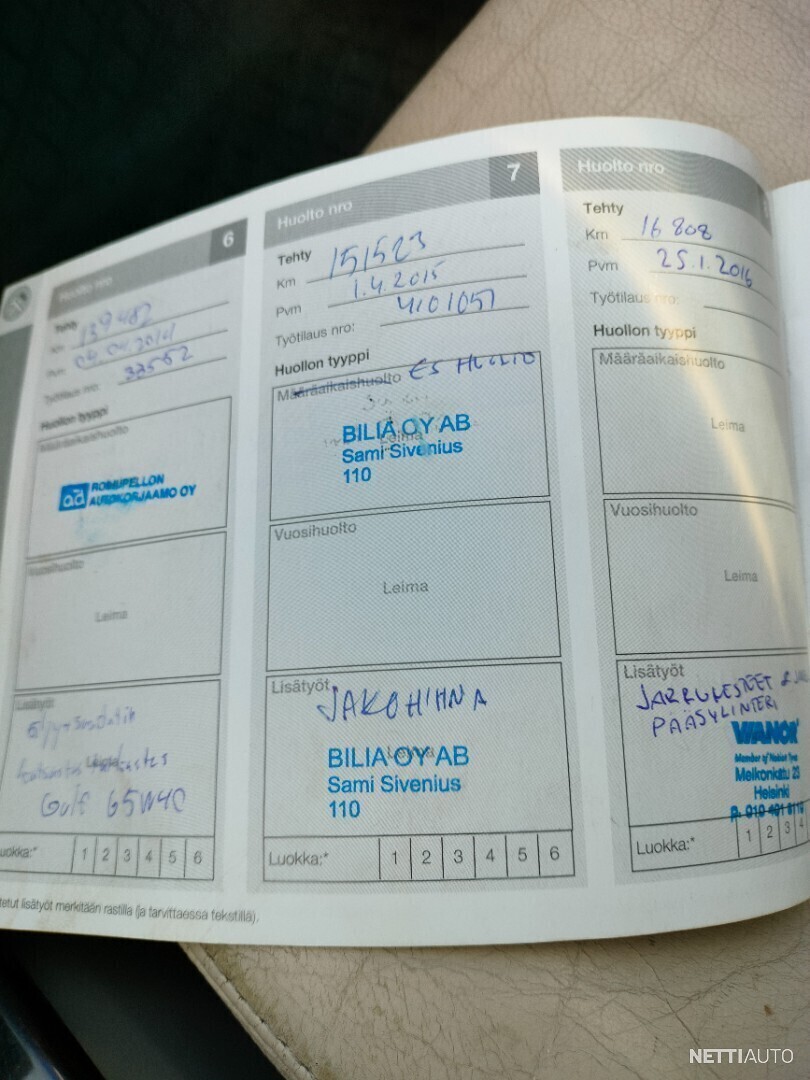 Huolto nro
6
Tehty
Km 139482
Pvm 04.04.2014
Työtilaus nro: 32562
Huollon tyyppi
Määräaikaishuolto
ad ROINUPELLON
AUTOKORJAAMO OY
Vuosihuolto
Leima
Lisätyöt
Öljy+Suodatin
tarkastus
Gulf 65W40
Luokka:* 1 2 3 4 5 6
Huolto nro
7
Tehty
Km 151523
Pvm 1.4.2015
Työtilaus nro: 4101051
Huollon tyyppi
Määräaikaishuolto ES HUOLTO
BILIA OY AB
Leima
Sami Sivenius
110
Vuosihuolto
Leima
Lisätyöt
JAKOHIHNA
Leima
BILIA OY AB
Sami Sivenius
110
Luokka:* 1 2 3 4 5 6
Huolto nro
Tehty
Km 16 808
Pvm 25.1.2016
Työtilaus nro:
Huollon tyyppi
Määräaikaishuolto
Leima
Vuosihuolto
Leima
Lisätyöt
JARRUNESTEET &
PÄÄSYLINTERI
VIANOR
Member of Nokian Tyres
Melkonkatu 23
Helsinki
p. 010 401
Luokka:* 1 2 3 4
tetut lisätyöt merkitään rastilla (ja tarvittaessa tekstillä).
NETTIAUTO